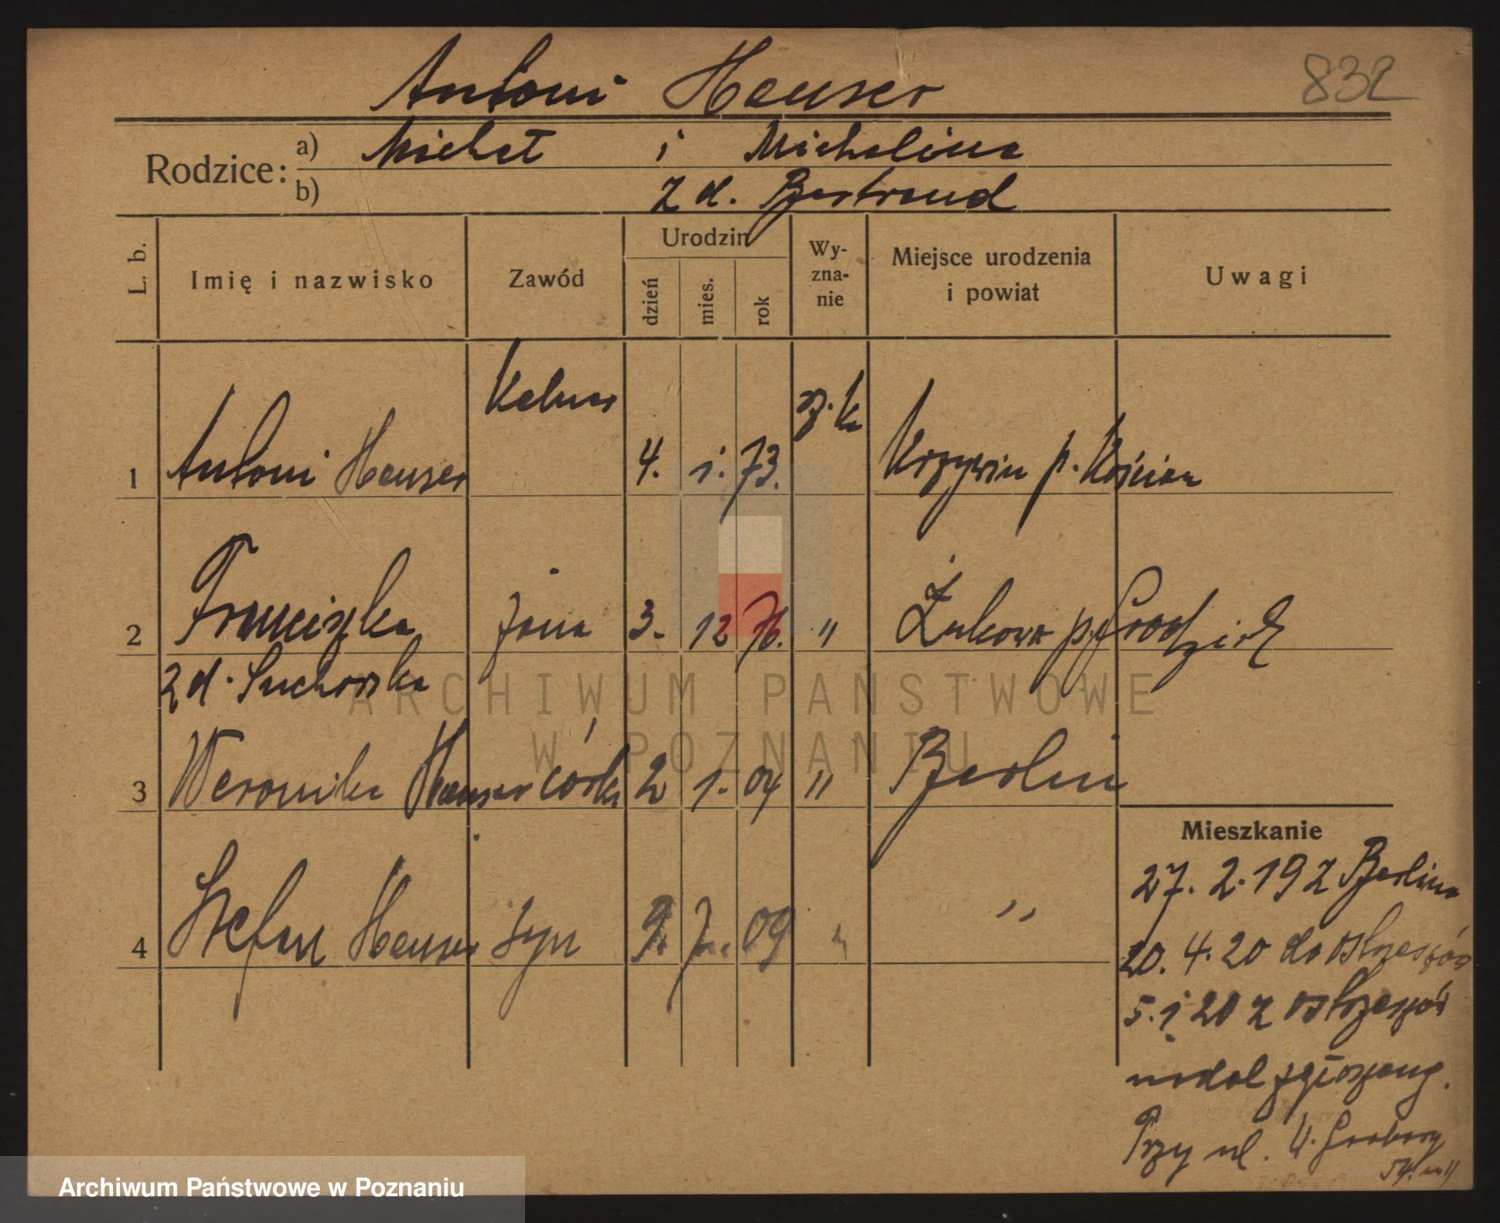 Antoni Heuser
832
Rodzice:
a) Michał i Michalina
b) z d. Bertrand
L. b.
Imię i nazwisko
Zawód
Urodzin
dzień
mies.
rok
Wy-
zna-
nie
Miejsce urodzenia
i powiat
Uwagi
1 Antoni Heuser Kelner 4. 1. 73. rz. k. Krzywin p. Kościan
2 Franciszka żona 3. 12 76. " Żukowo p. Grodzisk
z d. Suchorska
3 Weronika Heuser córka 2 1. 04 " Berlin
4 Stefan Heuser syn 9. 7. 09 " "
Mieszkanie
27. 2. 19 z Berlina
20. 4. 20 do Ostrzeszów
5. 1 20 z Ostrzeszów
nadal zgłoszony.
Przy ul. W. Garbary
54. m 4
ARCHIWUM PAŃSTWOWE
W POZNANIU
Archiwum Państwowe w Poznaniu